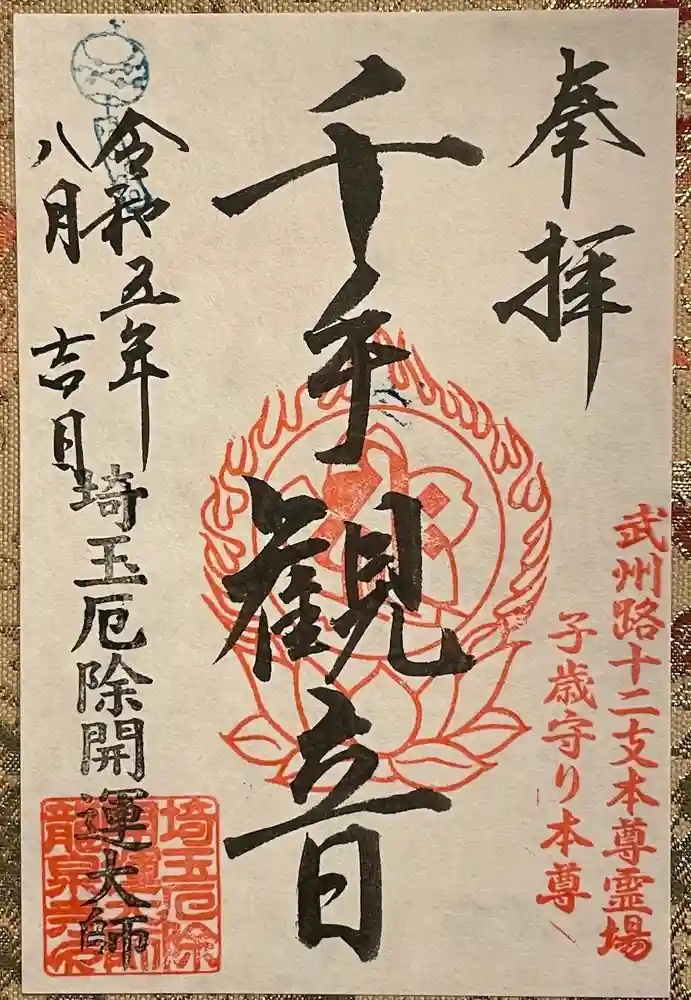 奉拝
武州路十二支本尊霊場
子歳守り本尊
千手観音
令和五年
八月 吉日
埼玉厄除開運大師
埼玉厄除
開運大師
龍泉寺